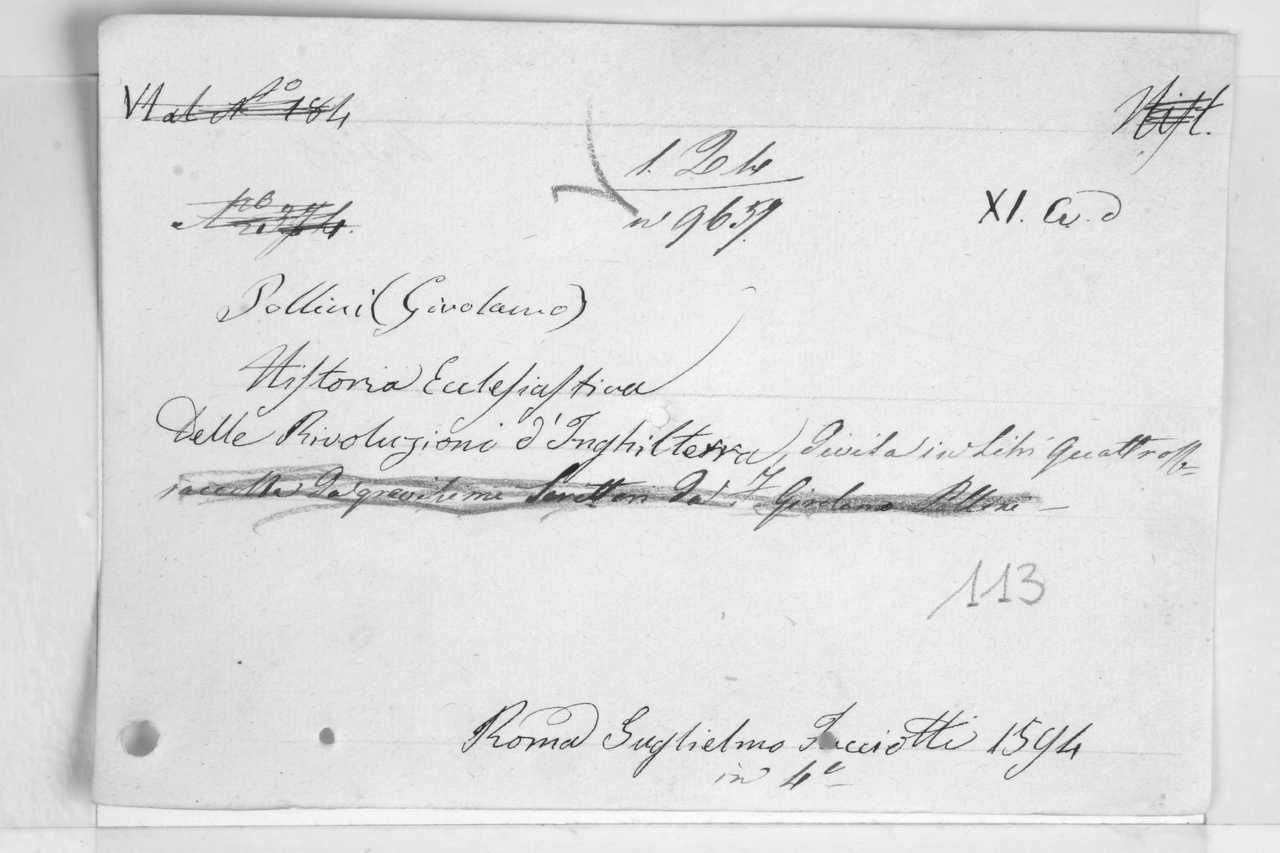 VI al Nº 184
Hist.
N° 374.
n 9659.
XI. Cc. d
Pollini (Girolamo)
Historia Ecclesiastica
Delle Rivoluzioni d'Inghilterra, divisa in Libri Quattro &c
raccolta da gravissimi Scrittori da Girolamo Pollini
113
Roma Guglielmo Facciotti 1594
in 4º